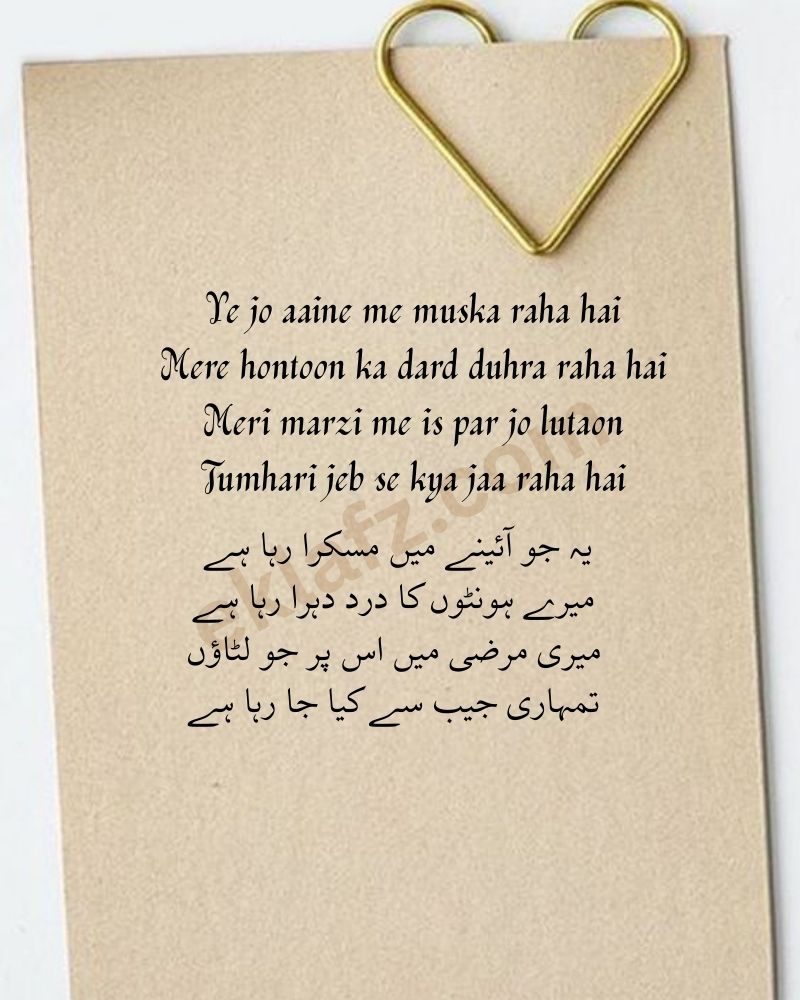 Ye jo aaine me muska raha hai
Mere hontoon ka dard duhra raha hai
Meri marzi me is par jo lutaon
Tumhari jeb se kya jaa raha hai
یہ جو آئینے میں مسکرا رہا ہے
میرے ہونٹوں کا درد دہرا رہا ہے
میری مرضی میں اس پر جو لٹاؤں
تمہاری جیب سے کیا جا رہا ہے
eklafz.com